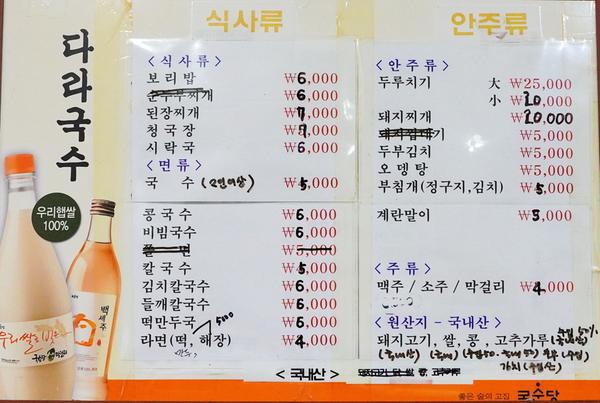 다라국수
식사류
<식사류>
보리밥 ₩6,000
순두부찌개 ₩6,000
된장찌개 ₩7,000
청국장 ₩7,000
시락국 ₩6,000
<면류>
국수 (2인이상) ₩5,000
콩국수 ₩6,000
비빔국수 ₩6,000
쫄면 ₩5,000
칼국수 ₩5,000
김치칼국수 ₩6,000
들깨칼국수 ₩6,000
떡만두국 5000 ₩6,000
라면(떡, 해장) ₩4,000
안주류
<안주류>
두루치기 大 ₩25,000
小 ₩20,000
돼지찌개 ₩20,000
₩5,000
두부김치 ₩5,000
오뎅탕 ₩5,000
부침개(정구지,김치) ₩5,000
계란말이 ₩5,000
<주류>
맥주/소주/막걸리 ₩4,000
<원산지-국내산>
돼지고기, 쌀, 콩, 고추가루
(국내산)
<국내산>
우리햅쌀
100%
우리쌀로 빚은
백세주
좋은 술의 고집 국순당